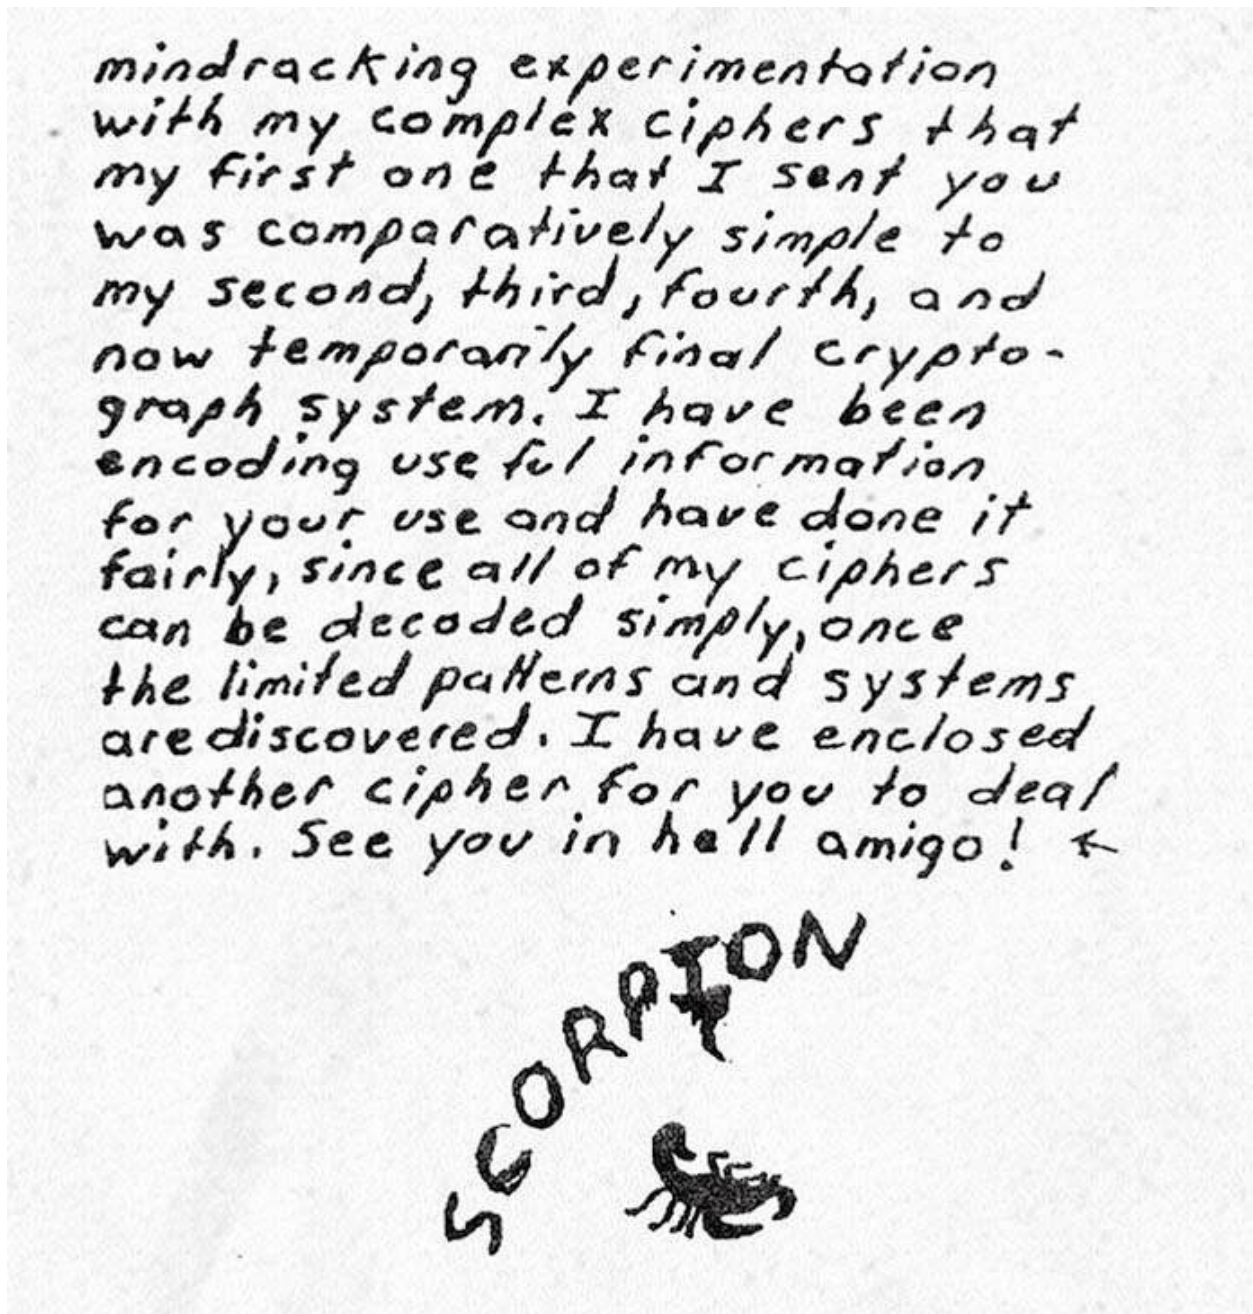 mindracking experimentation
with my complex ciphers that
my first one that I sent you
was comparatively simple to
my second, third, fourth, and
now temporarily final crypto-
graph system. I have been
encoding useful information
for your use and have done it
fairly, since all of my ciphers
can be decoded simply, once
the limited patterns and systems
are discovered. I have enclosed
another cipher for you to deal
with. See you in hell amigo! ←
SCORPION